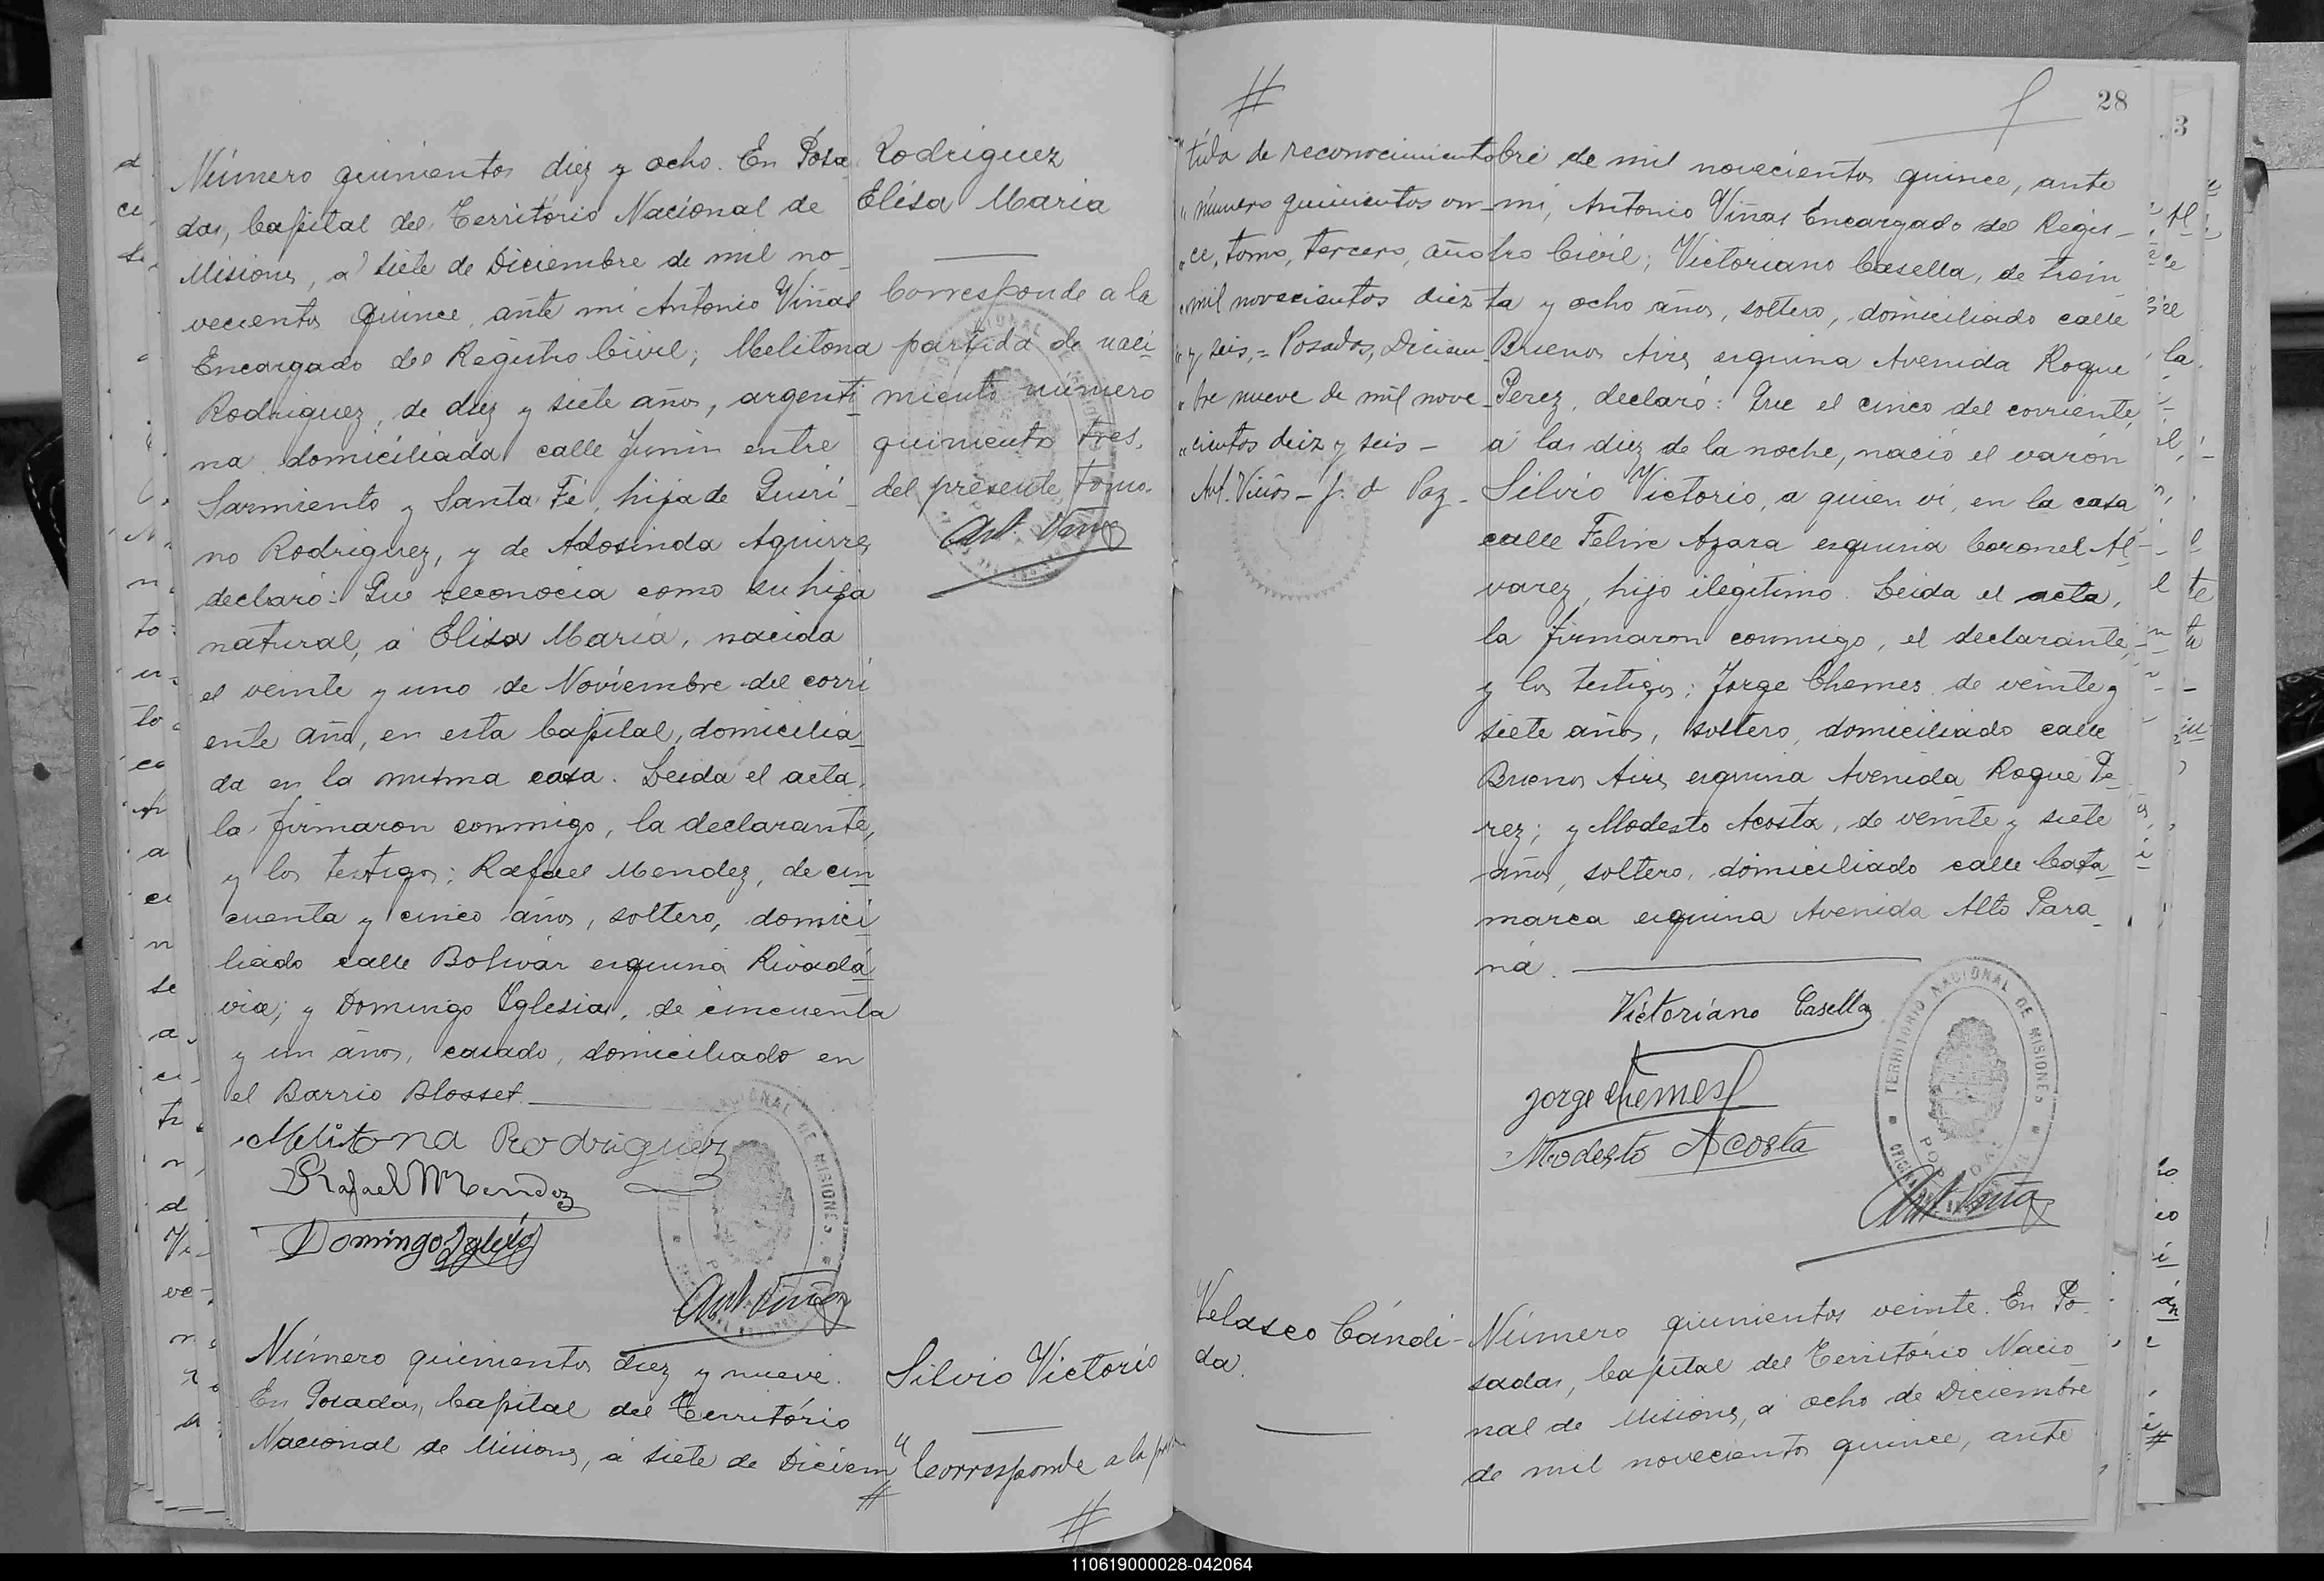 Número quinientos diez y ocho. En Posa
das, Capital del Território Nacional de
Misiones, a siete de Diciembre de mil no_
vecientos quince, ante mi Antonio Viñas
Encargado del Registro Civil; Melitona
Rodriguez, de diez y siete años, argenti_
na domiciliada calle Junin entre
Sarmiento y Santa Fé, hija de Quiri_
no Rodriguez, y de Adosinda Aguirre
declaró: Que reconocia como su hija
natural, á Elisa María, nacida
el veinte y uno de Noviembre del corri
ente año, en esta Capital, domicilia_
da en la misma casa. Leida el acta,
la firmaron conmigo, la declarante,
y los testigos: Rafael Mendez, de cin
cuenta y cinco años, soltero, domici
liado calle Bolivar esquina Rivada
via; y Domingo Yglesias, de cincuenta
y un años, casado, domiciliado en
el Barrio Blosset.
Melitona Rodriguez
Rafael Mendez
Domingo Yglesias
Ant. Viñas
Rodriguez
Elisa Maria
Corresponde a la
partida de naci_
miento número
quinientos tres,
del presente tomo.
Ant. Viñas
Número quinientos diez y nueve.
En Posadas, Capital del Território
Nacional de Misiones, á siete de Diciem
Silvio Victorio
" Corresponde a la par
#
#
#
28
tida de reconocimiento
" número quinientos on_
" ce, tomo, tercero, año
" mil novecientos diez
" y seis,= Posadas, Diciem_
" bre nueve de mil nove_
" cientos diez y seis _
Ant. Viñas _ J. d Paz _
bre de mil novecientos quince, ante
mi, Antonio Viñas Encargado del Regis_
tro Civil; Victoriano Casella, de trein
ta y ocho años, soltero, domiciliado calle
Buenos Aires esquina Avenida Roque
Perez, declaró: Que el cinco del corriente,
á las diez de la noche, nació el varón
Silvio Victorio, a quien vi, en la casa
calle Felix Azara esquina Coronel Al_
varez, hijo ilegítimo. Leida el acta,
la firmaron conmigo, el declarante,
y los testigos: Jorge Chemes de veinte y
siete años, soltero, domiciliado calle
Buenos Aires esquina Avenida Roque Pe_
rez; y Modesto Acosta, de veinte y siete
años, soltero, domiciliado calle Cata_
marca esquina Avenida Alto Para_
ná.
Victoriano Casella
Jorge Chemes
Modesto Acosta
TERRITORIO NACIONAL DE MISIONES
Ant. Viñas
Velasco Cándi_
da.
Número quinientos veinte. En Po_
sadas, Capital del Território Nacio_
nal de Misiones, á ocho de Diciembre
de mil novecientos quince, ante
110619000028-042064